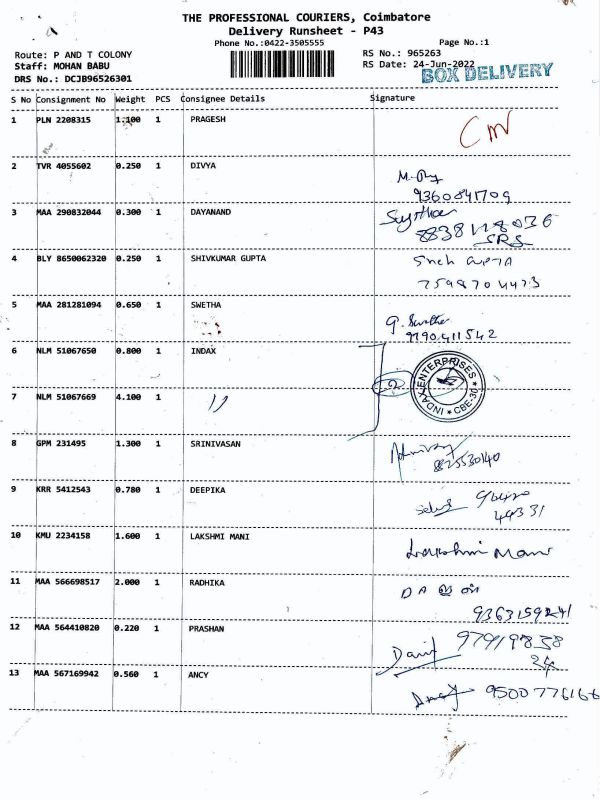 THE PROFESSIONAL COURIERS, Coimbatore
Delivery Runsheet - P43
Phone No.:0422-3505555
Page No.:1
Route: P AND T COLONY
RS No.: 965263
Staff: MOHAN BABU
RS Date: 24-Jun-2022
DRS No.: DCJB96526301
BOX DELIVERY
S No Consignment No Weight PCS Consignee Details Signature
1 PLN 2208315 1.100 1 PRAGESH
2 TVR 4055602 0.250 1 DIVYA
9360841709
3 MAA 290832044 0.300 1 DAYANAND
SRS
4 BLY 8650062320 0.250 1 SHIVKUMAR GUPTA
Sneh GUPTA
7598704473
5 MAA 281281094 0.650 1 SWETHA
G. Swetha
9790411542
6 NLM 51067650 0.800 1 INDAX
INDAX ENTERPRISES * CBE-30 *
2
7 NLM 51067669 4.100 1 "
8 GPM 231495 1.300 1 SRINIVASAN
8825530140
9 KRR 5412543 0.780 1 DEEPIKA
49331
10 KMU 2234158 1.600 1 LAKSHMI MANI
Lakshmi Mani
11 MAA 566698517 2.000 1 RADHIKA
9363159241
12 MAA 564410820 0.220 1 PRASHAN
9791983824
13 MAA 567169942 0.560 1 ANCY
9500776166